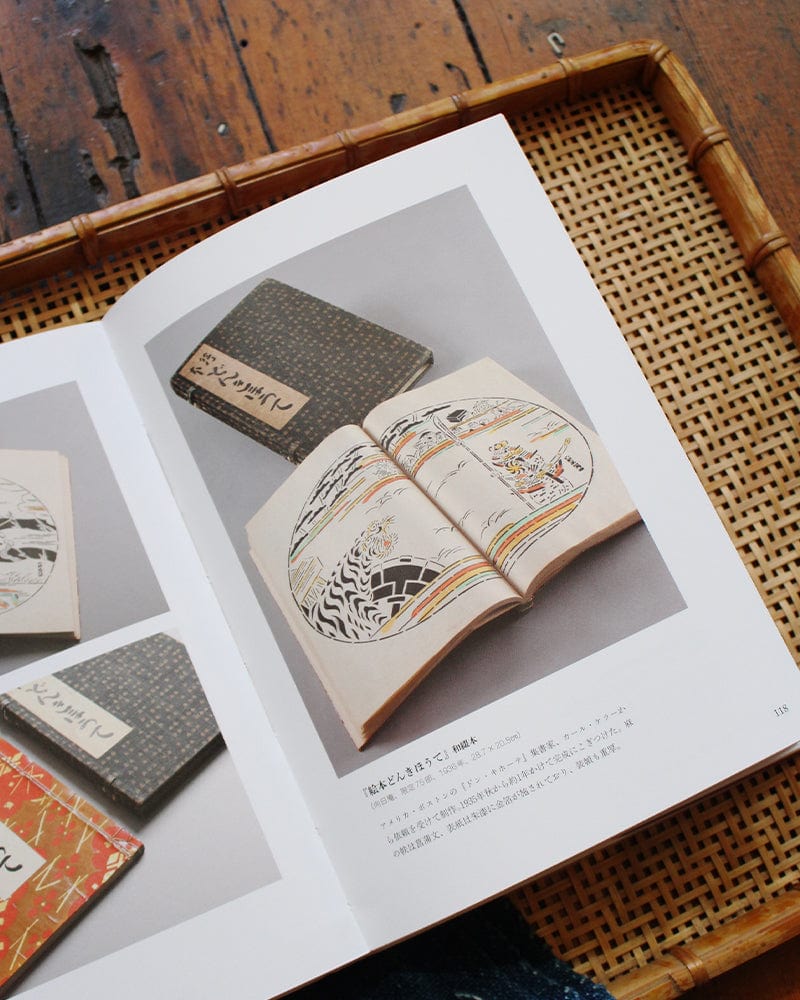 絵本どんきほうて
『絵本どんきほうて』和綴本
(向日庵、限定75部、1936年、28.7×20.5cm)
アメリカ・ボストンの『ドン・キホーテ』集書家、カール・ケラーか
ら依頼を受けて制作。1935年秋から約1年かけて完成にこぎつけた。麻
の帙は菖蒲文、表紙は朱漆に金箔が施されており、装幀も重厚。
118